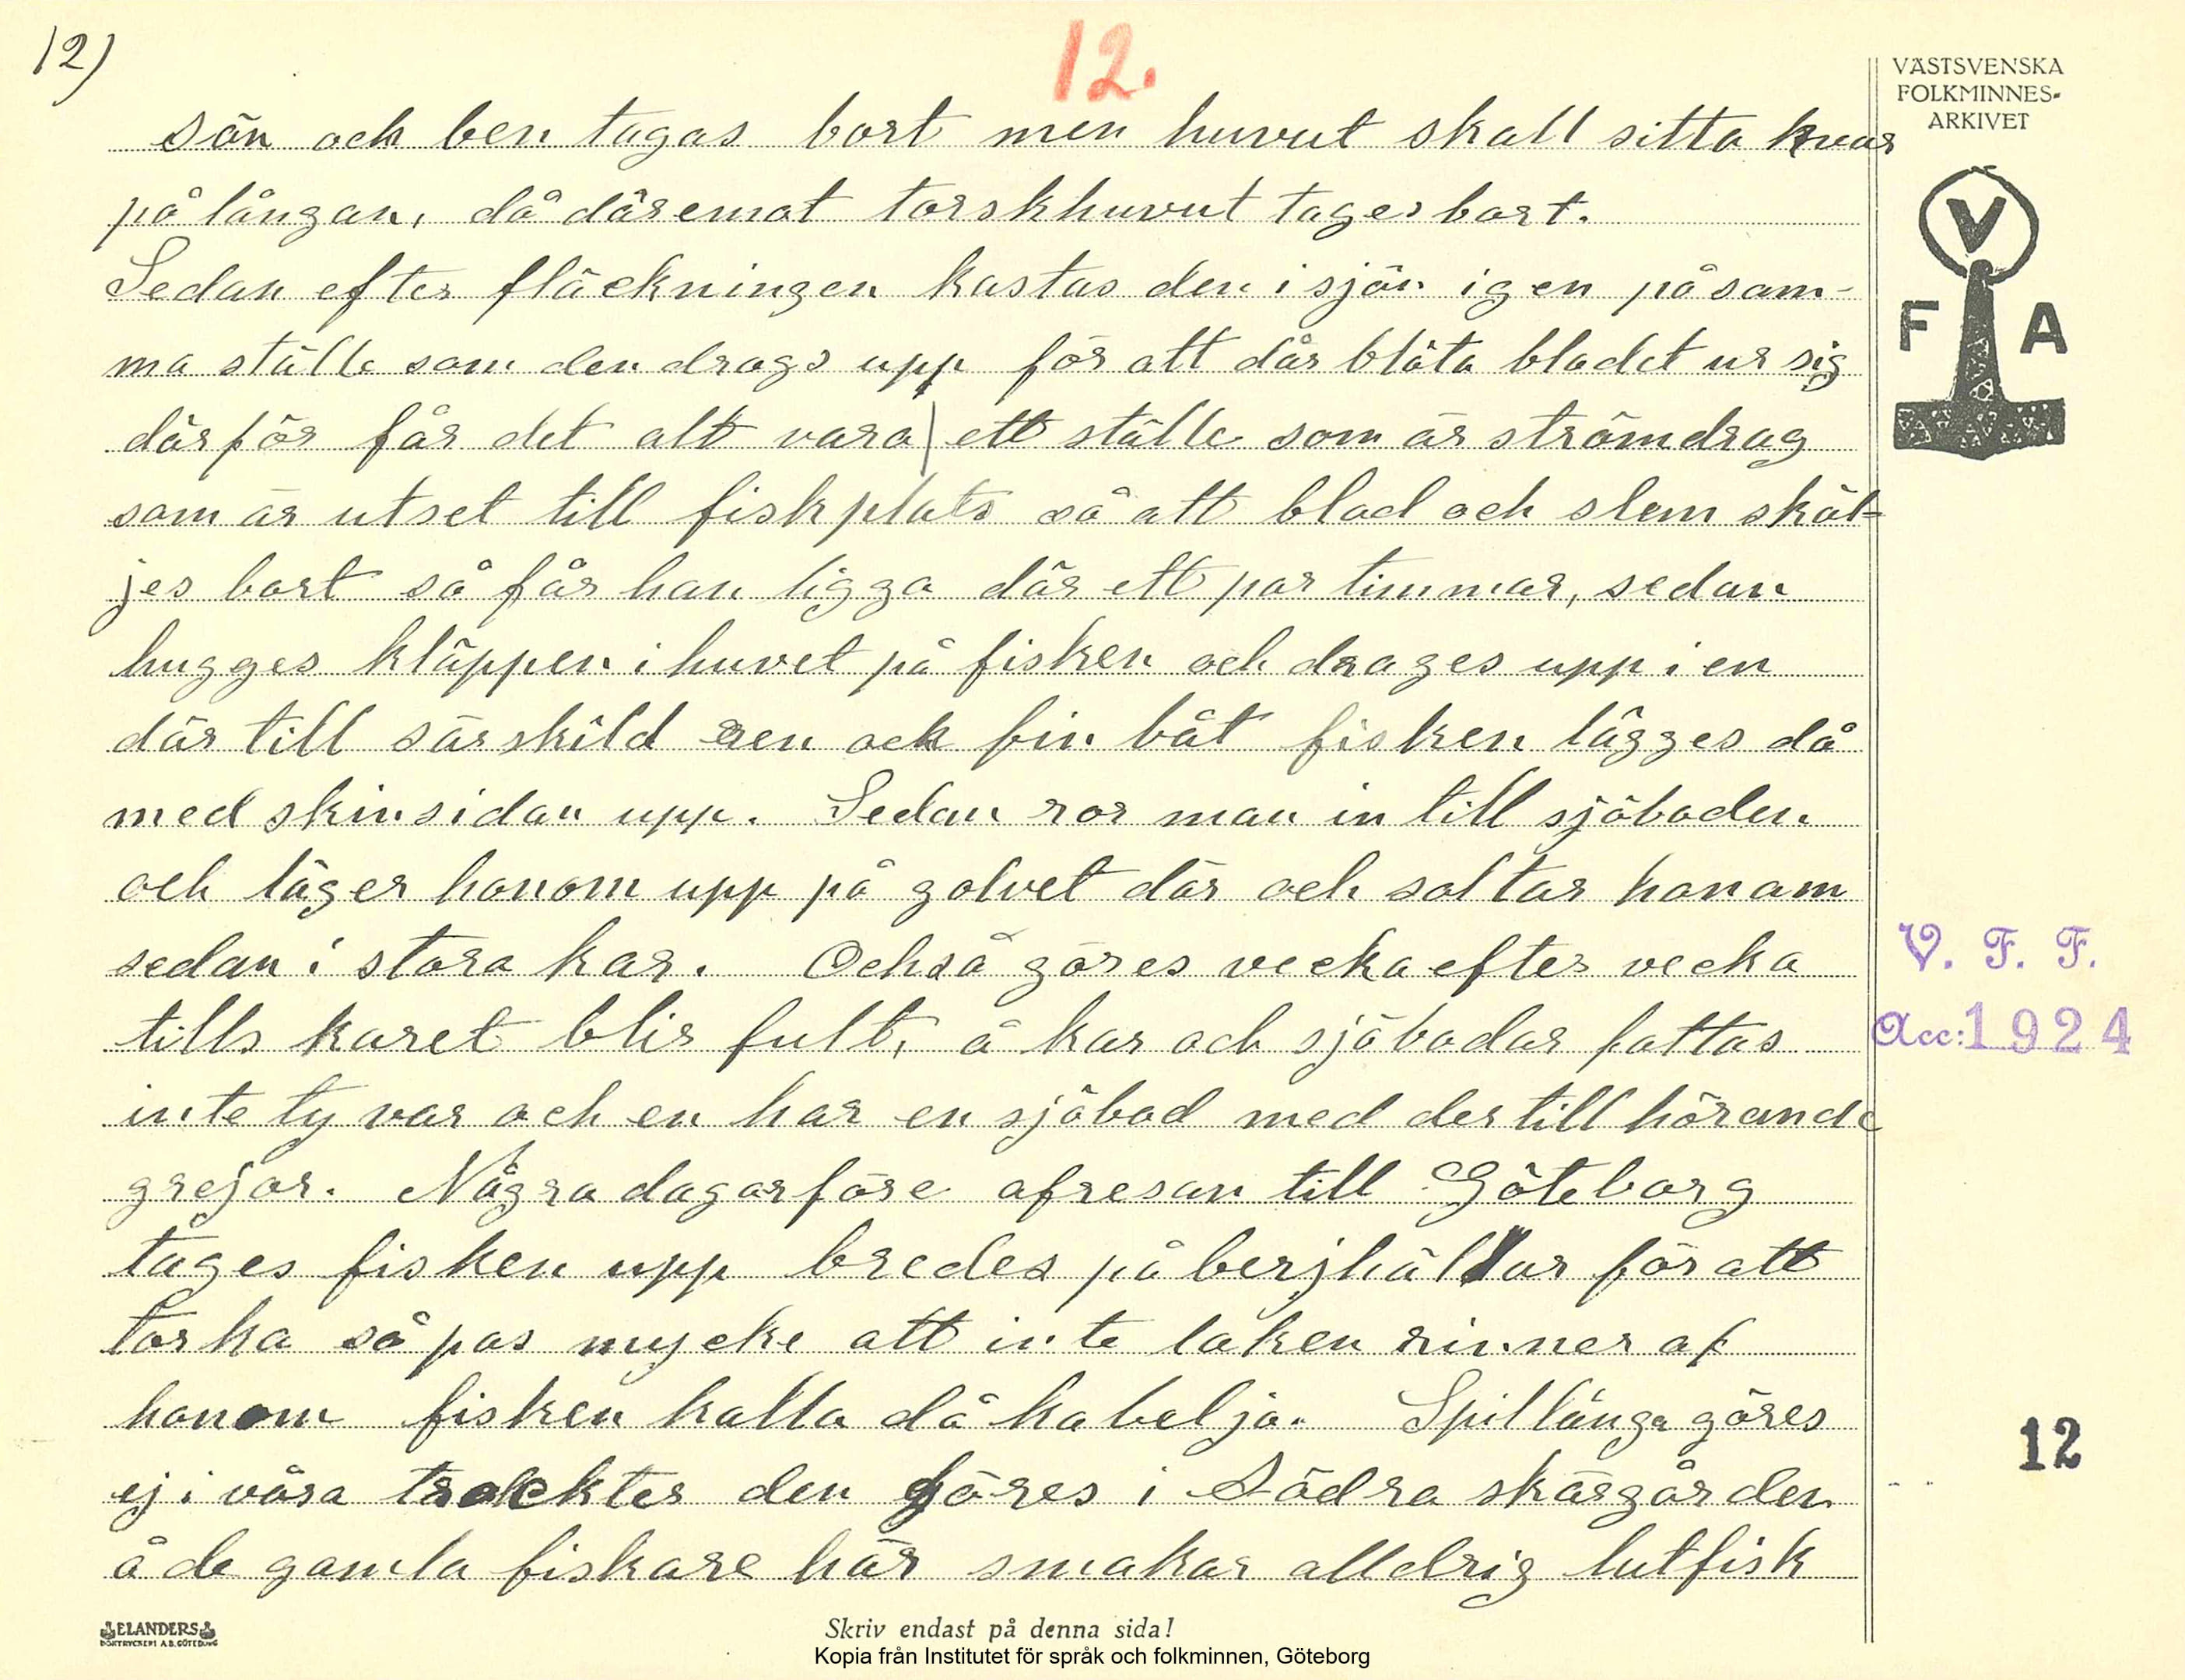 12)
12.
VÄSTSVENSKA
FOLKMINNES-
ARKIVET
V
F A
sön och ben tagas bort men huvut skall sitta kvar
på långan, då däremot torskhuvut tages bort.
Sedan efter fläckningen kastas den i sjön igen på sam-
ma ställe som den drogs upp för att där blöta blodet ur sig
därför får det alt vara ett ställe som är strömdrag
som är utset till fiskplats så att blod och slem sköl-
jes bort så får han ligga där ett par timmar, sedan
hugges kläppen i huvet på fisken och drages upp i en
där till särskild ren ock fin båt fisken lägges då
med skinsidan upp. Sedan ror man in till sjöboden
och läger honom upp på golvet där och saltar honom
sedan i stora kar. Också göres vecka efter vecka
tills karet blir fult, å kar och sjöbodar fattas
inte ty var och en har en sjöbod med der till hörande
grejor. Några dagar före afresan till Göteborg
tages fisken upp bredes på berjhällar för att
torka så pas mycke att inte laken rinner af
honom fisken kalla då kabelja. Spillånga göres
ej i våra trackter den göres i Södra skärgården
å de gamla fiskare här smakar alldrig lutfisk
V. F. F.
Acc: 1924
12
ELANDERS
BOKTRYCKERI A.B. GÖTEBORG
Skriv endast på denna sida!
Kopia från Institutet för språk och folkminnen, Göteborg